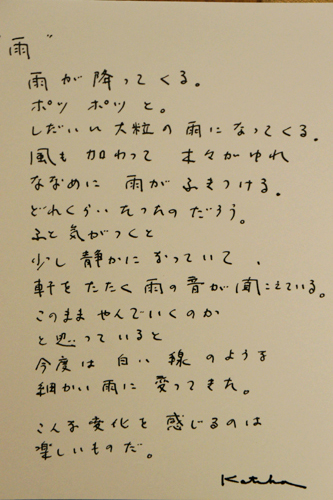 "雨"
雨が降ってくる。
ポツ ポツ と。
しだいい 大粒の 雨になってくる。
風も 加わって 木々がゆれ
ななめに 雨が ふきつける。
どれくらい たったの だろう。
ふと 気がつくと
少し 静かに なっていて、
軒を たたく 雨の 音が 聞こえている。
このまま やんでいくのか
と 思っていると
今度は 白い 線 のような
細かい 雨に 変ってきた。
こんな 変化を 感じるのは
楽しいものだ。